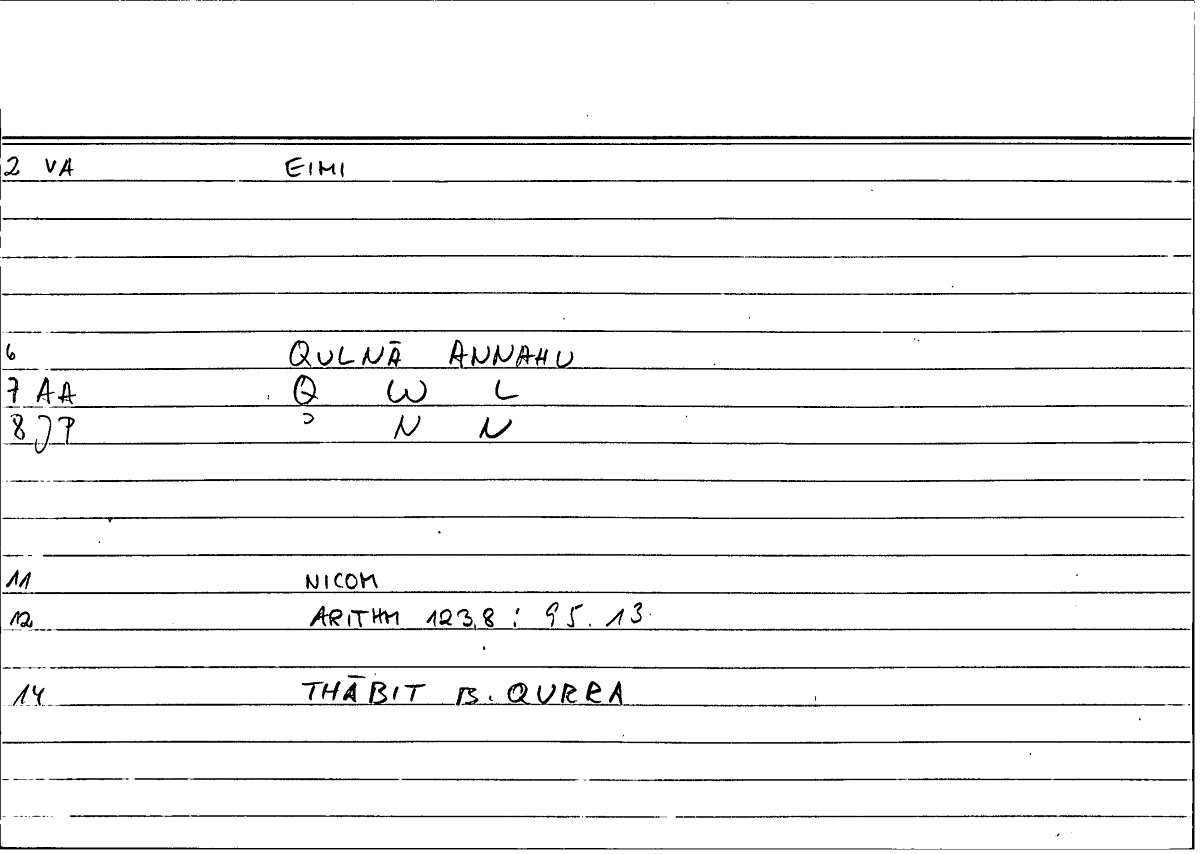 2 VA EIMI
6 QULNĀ ANNAHU
7 AA Q W L
8 JP ʾ N N
11 NICOM
12 ARITHM 123,8 : 95.13
14 THĀBIT B. QURRA